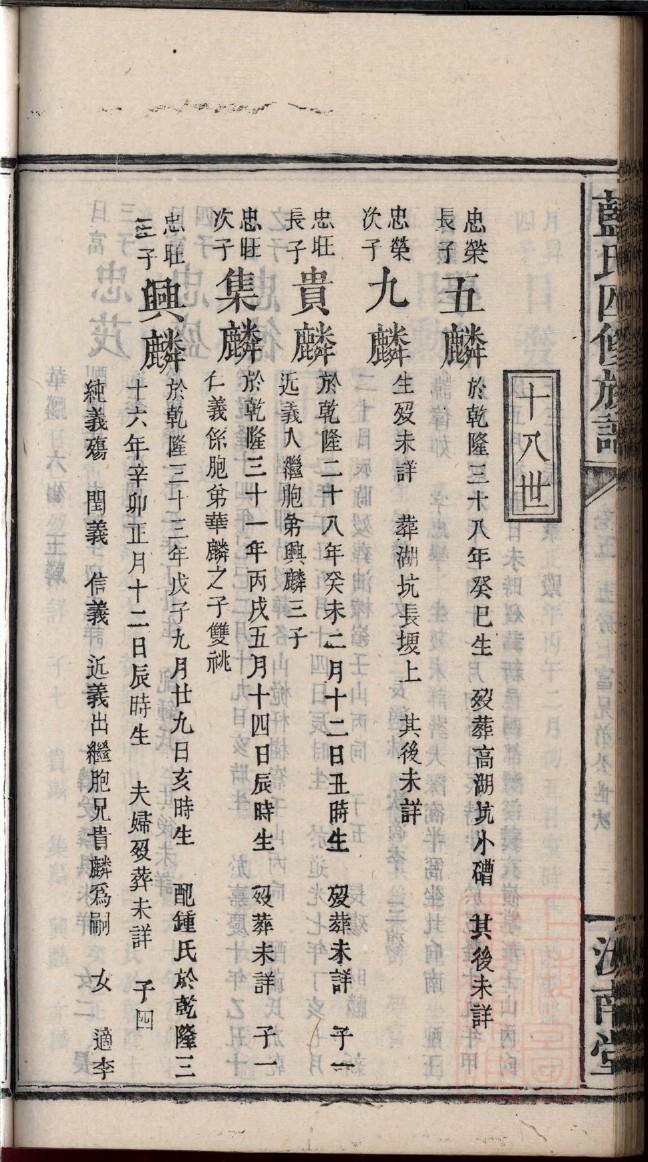 藍氏四修族譜
汝南堂
十八世
忠榮長子 五麟 於乾隆三十八年癸巳生 歿葬高湖坑小磳 其後未詳
忠榮次子 九麟 生歿未詳 葬湖坑長堘上 其後未詳
忠旺長子 貴麟 於乾隆二十八年癸未二月十二日丑時生 歿葬未詳 子一
近義入繼胞弟興麟三子
忠旺次子 集麟 於乾隆三十一年丙戌五月十四日辰時生 歿葬未詳 子一
仁義係胞弟華麟之子雙祧
忠旺三子 興麟 於乾隆三十三年戊子九月廿九日亥時生 配鍾氏於乾隆三
十六年辛卯正月十二日辰時生 夫婦歿葬未詳 子四
純義殤 閏義 信義 近義出繼胞兄貴麟爲嗣 女 適李